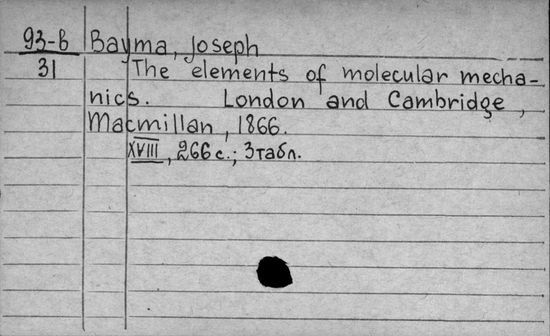 93-в Bayma, Joseph
31 The elements of molecular mecha-
nics. London and Cambridge,
Macmillan, 1866.
XVIII, 266 с.; 3 табл.